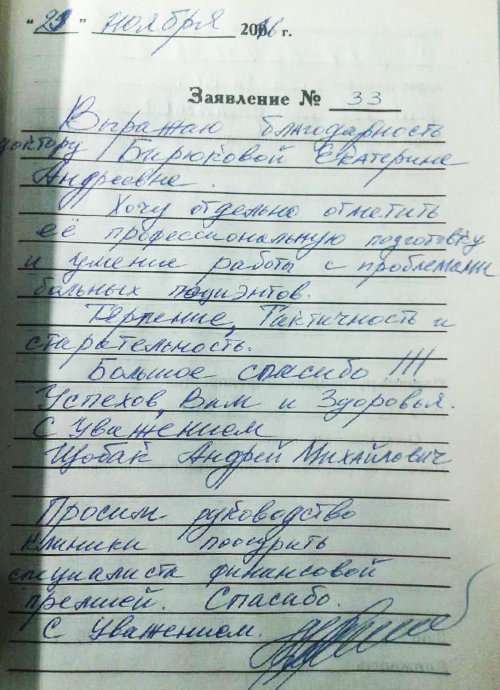 "23" ноября 2016 г.
Заявление № 33
Выражаю благодарность
доктору Бирюковой Екатерине
Андреевне.
Хочу отдельно отметить
её профессиональную подготовку
и умение работы с проблемами
больных пациэнтов.
Терпение, Тактичность и
старательность.
Большое спасибо !!!
Успехов Вам и Здоровья.
С Уважением
Щобак Андрей Михайлович
Просим руководство
клиники поощрить
специалиста финансовой
премией. Спасибо.
С Уважением.